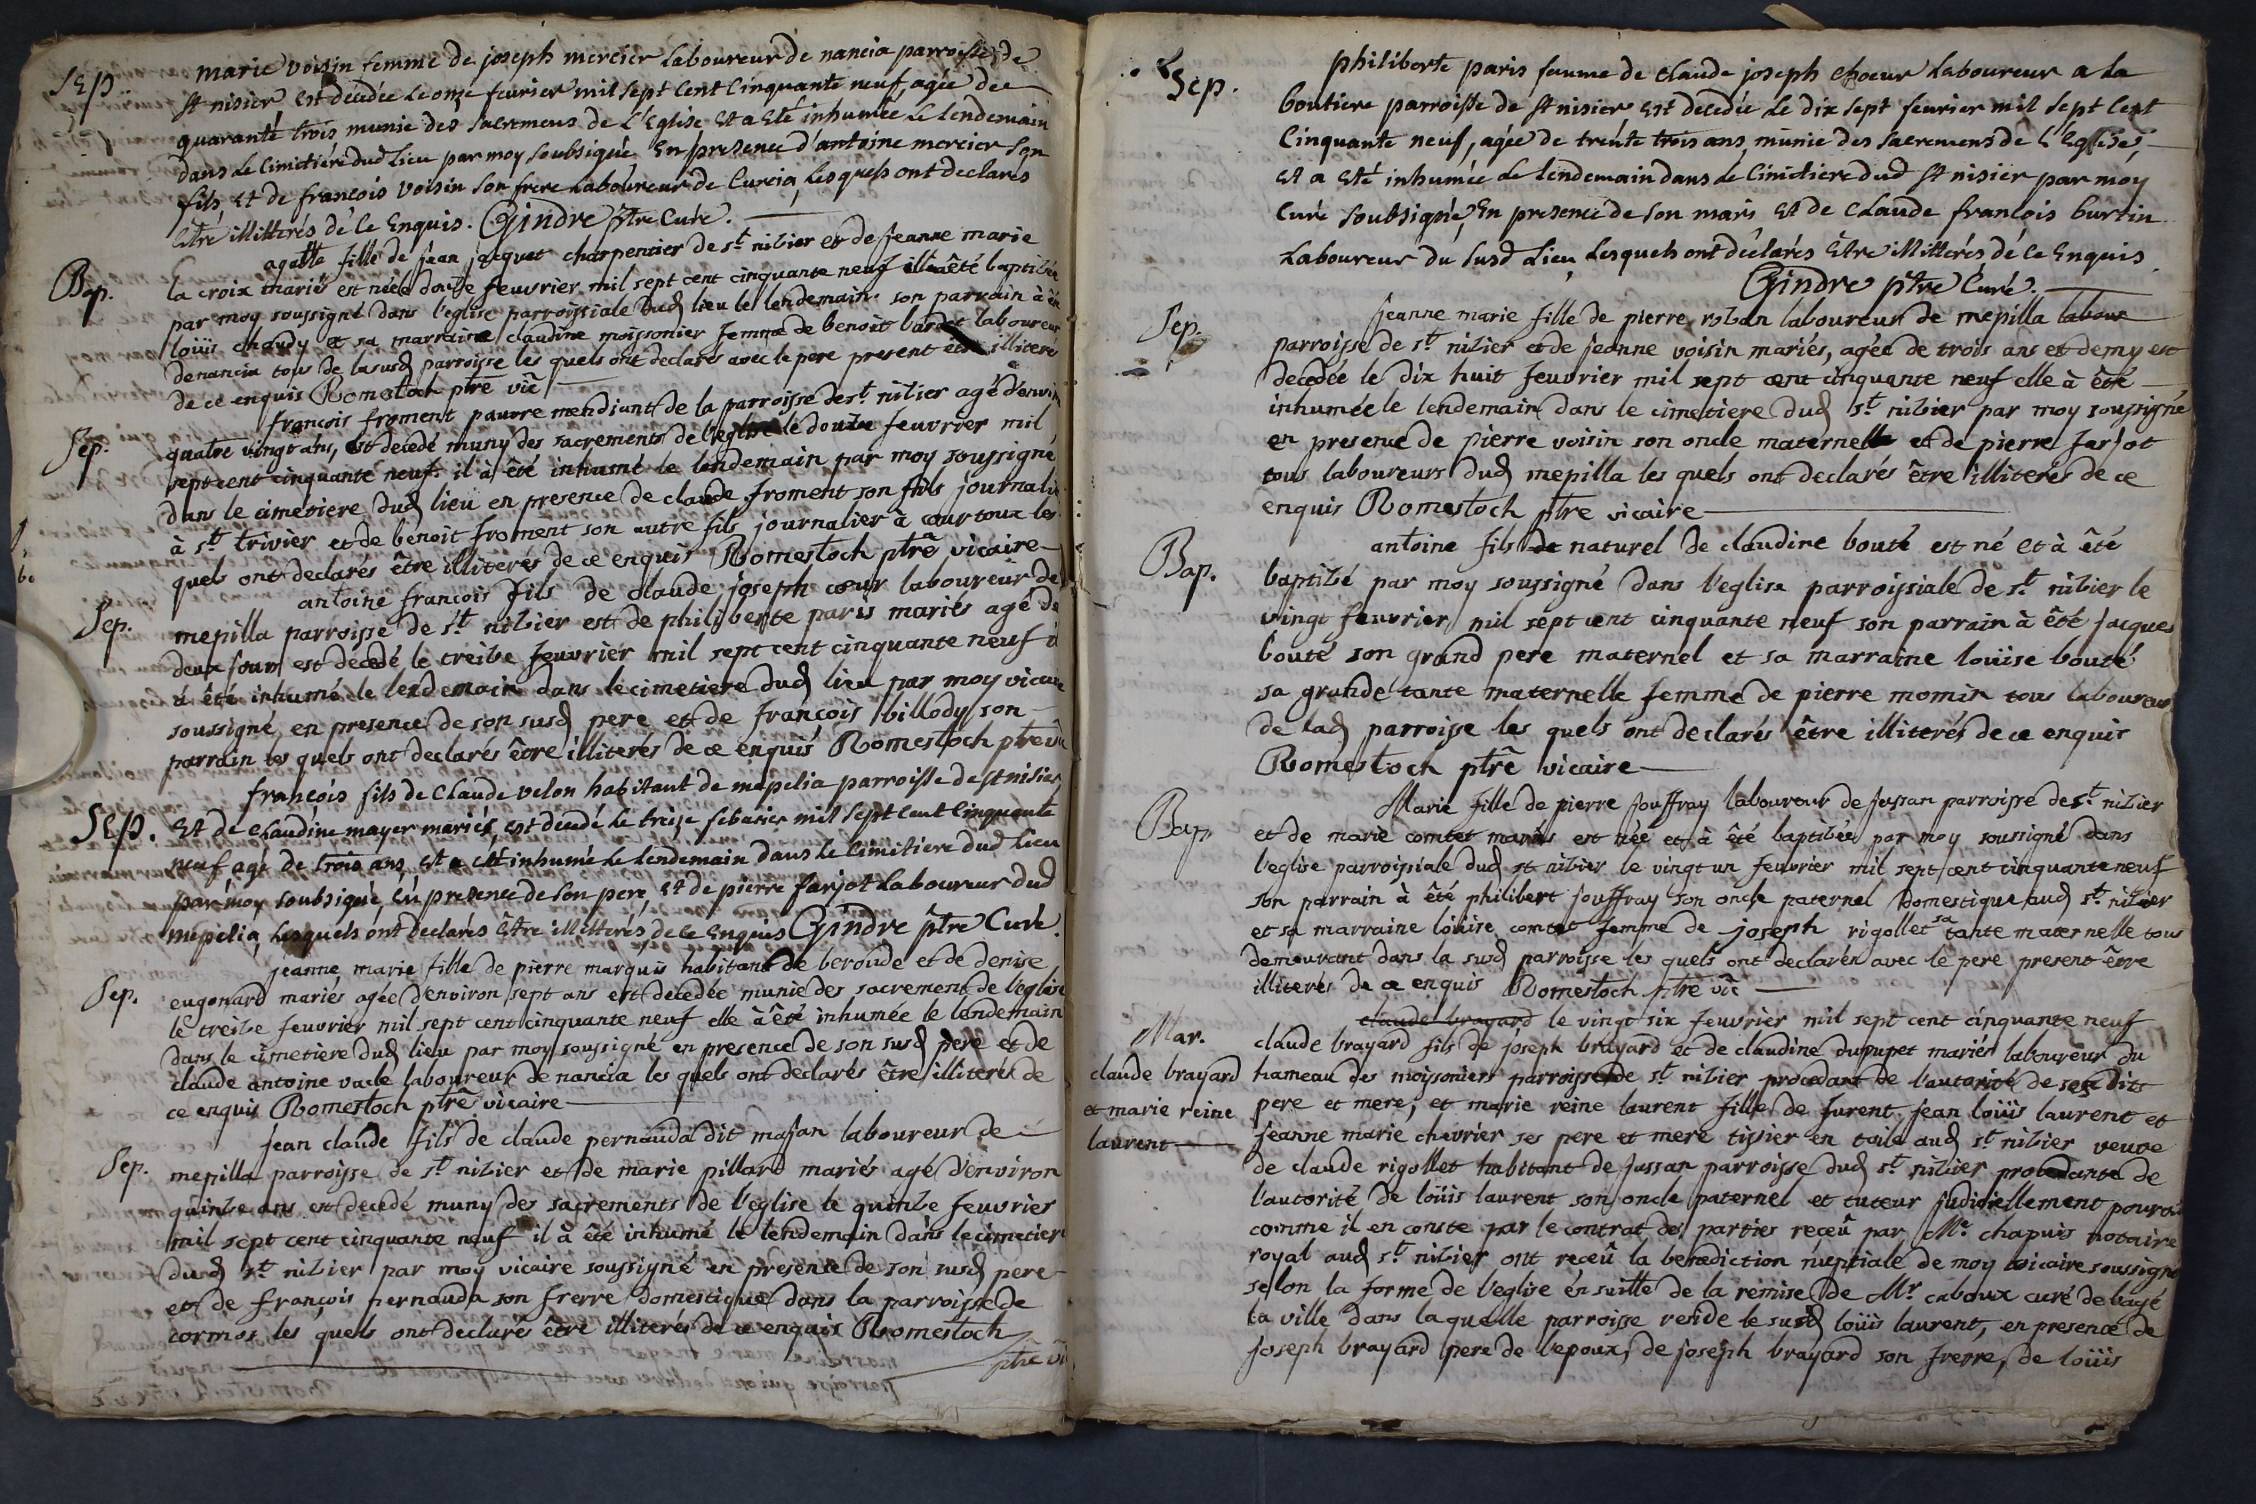 Sep.
marie voisin femme de joseph mercier Laboureur de nancia parroisse de
st nisier est décédée le onze fevrier mil sept Cent Cinquante neuf, agée de
quarante trois munie des sacremens de l'Eglise et a Eté inhumée le lendemain
dans le Cimetiére dud Lieu par moy soubsigné En présence d'antoine mercier son
fils et de françois voisin son frere Laboureur de Curcia, Lesquels ont declarés
Etre illitterés de ce Enquis. Gindre ptre Curé.
Bap.
agathe fille de jean jacquet charpentier de st nizier et de jeanne marie
la croix mariés est née douze feuvrier mil sept cent cinquante neuf à été baptizée
par moy soussigné dans l'eglise parroissiale dud lieu le lendemain son parrain à été
loüis chaudy et sa marraine claudine moissonier femme de benoit laboureur
de nancia tous de la susd parroisse les quels ont declarés avec le pere present être illiterés
de ce enquis Romestoch ptre vic
Sep.
françois froment pauvre mendiant de la parroisse de st nizier agé d'environ
quatre vingt ans, est décédé muny des sacrements de l'eglise le douze feuvrier mil
sept cent cinquante neuf il à été inhumé le lendemain par moy soussigné
dans le cimetiere dud lieu en presence de claude froment son fils journalier
à st trivier et de benoit froment son autre fils journalier à courtoux les
quels ont declarés être illiterés de ce enquis Romestoch ptrê vicaire
Sep.
antoine françois fils de claude joseph coeur laboureur de
mepilla parroisse de st nizier est de philiberte paris mariés agé de
deux jours est décedé le treize feuvrier mil sept cent cinquante neuf il
à été inhumé le lendemain dans le cimetiere dud lieu par moy vicaire
soussigné en presence de son susd pere et de françois billody son
parrain les quels ont declarés être illiterés de ce enquis Romestoch ptre vic
Sep.
françois fils de Claude velon habitant de mepelia parroisse de st nisier
et de Claudine mayer mariés, est décédé le treize febvrier mil sept Cent Cinquante
neuf agé de trois ans et a eté inhumé le lendemain dans le Cimitiere dud Lieu
par moy soubsigné, En presence de son pere, et de pierre farjot Laboureur dud
mepelia, Lesquels ont declarés Etre illitterés de ce Enquis Gindre ptre Curé.
Sep.
jeanne marie fille de pierre marquis habitant de beroude et de denise
eugonard mariés agée d'environ sept ans est décedée munie des sacrement de l'eglise
le treize feuvrier mil sept cent cinquante neuf elle à été inhumée le lendemain
dans le cimetiere dud lieu par moy soussigné en presence de son susd pere et de
claude antoine vaclé laboureur de nancia les quels ont declarés être illiterés de
ce enquis Romestoch ptrê vicaire
Sep.
jean claude fils de claude pernauda dit majan laboureur de
mepilla parroisse de st nizier et de marie pillard mariés agé d'environ
quinze ans est decedé muny des sacrements de l'eglise le quinze feuvrier
mil sept cent cinquante neuf il à été inhumé le lendemain dans le cimetiere
dud st nizier par moy vicaire soussigné en presence de son susd pere
et de françois pernauda son frerre domestique dans la parroisse de
cormos les quels ont declarés être illiterés de ce enquis Romestoch
ptre vic
Sep.
philiberte paris femme de Claude joseph Choeur Laboureur a la
boutiere parroisse de st nisier est decedée le dix sept fevrier mil sept Cent
Cinquante neuf, agée de trente trois ans, munie des sacremens de l'Eglise,
et a Eté inhumée le lendemain dans le Cimitiere dud st nisier par moy
Curé soubsigné, En presence de son mari et de Claude françois burtin
Laboureur du susd Lieu Lesquels ont déclarés Etre illitterés de ce Enquis
Gindre ptre Curé.
Sep.
jeanne marie fille de pierre roban laboureur de mepilla labour
parroisse de st nizier et de jeanne voisin mariés, agée de trois ans et demy est
decedée le dix huit feuvrier mil sept cent cinquante neuf elle à été
inhumée le lendemain dans le cimetiere dud st nizier par moy soussigné
en presence de pierre voisin son oncle maternel et de pierre farjot
tous laboureurs dud mepilla les quels ont declarés être illiterés de ce
enquis Romestoch ptre vicaire
Bap.
antoine fils de naturel de claudine bouté est né et à été
baptizé par moy soussigné dans l'eglise parroissiale de st nizier le
vingt feuvrier mil sept cent cinquante neuf son parrain à été jacques
bouté son grand pere maternel et sa marraine loüise bouté
sa grande tante maternelle femme de pierre momin tous laboureurs
de lad parroisse les quels ont declarés être illiterés de ce enquis
Romestoch ptrê vicaire
Bap.
Marie fille de pierre jouffray laboureur de jussan parroisse de st nizier
et de marie comtet mariés est née et à été baptizée par moy soussigné dans
l'eglise parroissiale dud st nizier le vingt un feuvrier mil sept cent cinquante neuf
son parrain à été philibert jouffray son oncle paternel domestique aud st nizier
et sa marraine loüise comtet femme de joseph rigollet sa tante maternelle tous
demeurant dans la susd parroisse les quels ont declarés avec le pere present être
illiterés de ce enquis Romestoch ptre vic
Mar.
claude brayard
et marie reine
laurent
claude brayard le vingt six feuvrier mil sept cent cinquante neuf
claude brayard fils de joseph brayard et de claudine dupupet mariés laboureur du
hameau des moissoniers parroisse de st nizier procedant de l'autorité de ses dits
pere et mere, et marie reine laurent fille de furent jean loüis laurent et
jeanne marie chevrier ses pere et mere tissier en toile aud st nizier veuve
de claude rigollet habitant de jussan parroisse dud st nizier procedante de
l'autorité de loüis laurent son oncle paternel et tuteur judiciellement pourvû
comme il en conste par le contrat des parties reçeû par Me chapuis notaire
royal aud st nizier ont reçeû la benediction nuptiale de moy vicaire soussigné
selon la forme de l'eglise én suitte de la remise de Mr caboux curé de bagé
la ville dans laquelle parroisse reside le susd loüis laurent, en presence de
joseph brayard pere de l'epoux, de joseph brayard son frerre, de loüis